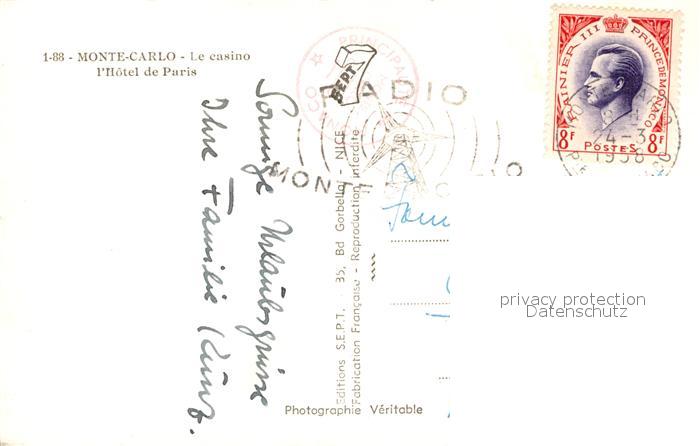 1-88 - MONTE-CARLO - Le casino
l'Hôtel de Paris
Sonnige Urlaubsgrüsse
Ihre Familie Kunz.
Editions S.E.P.T. - 35, Bd Gorbella - NICE
Fabrication Française - Reproduction interdite
SEPT
PRINCIPAUTÉ
MONACO
RADIO
MONTE CARLO
RAINIER III PRINCE DE MONACO
8F POSTES 8F
24-3
1958
Fam
privacy protection
Datenschutz
Photographie Véritable